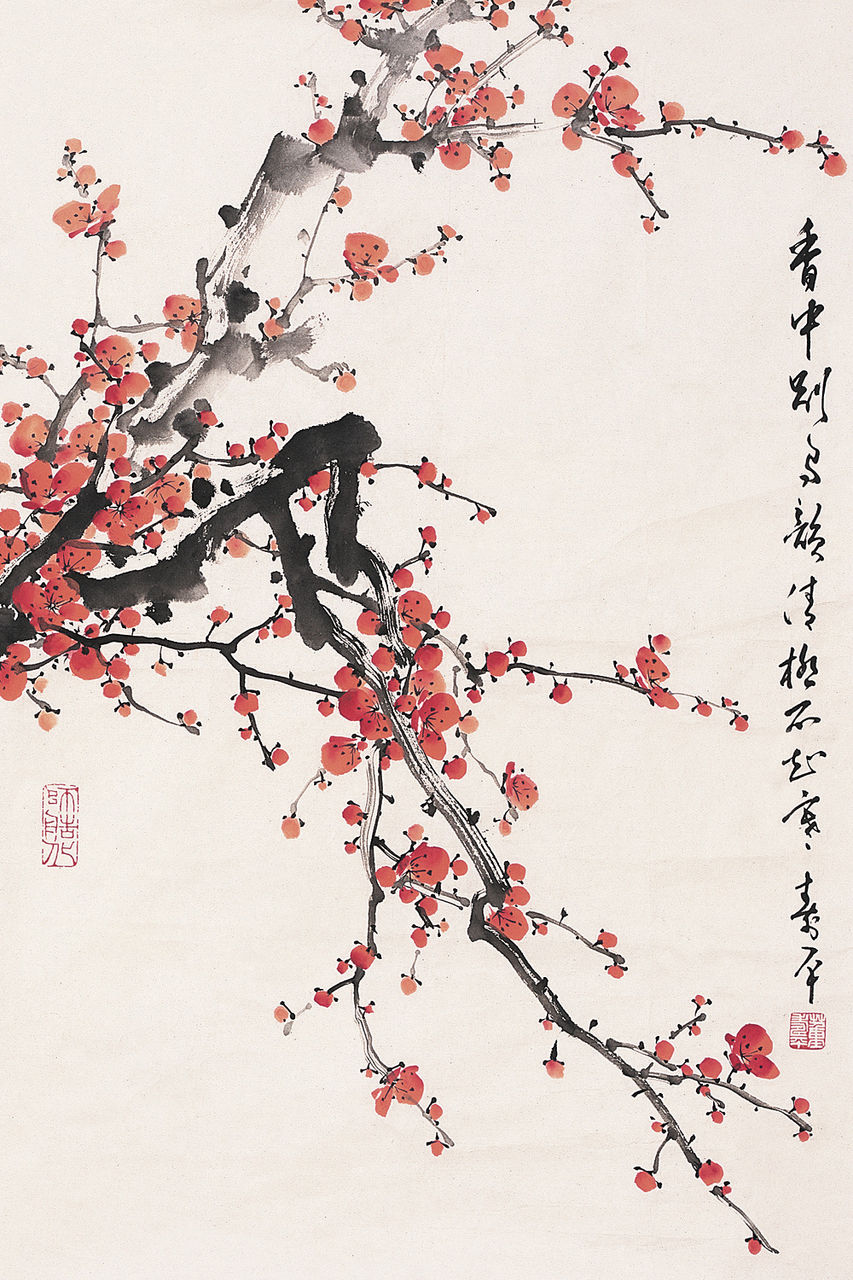 香中别有韵清极不知寒寿平
董寿平